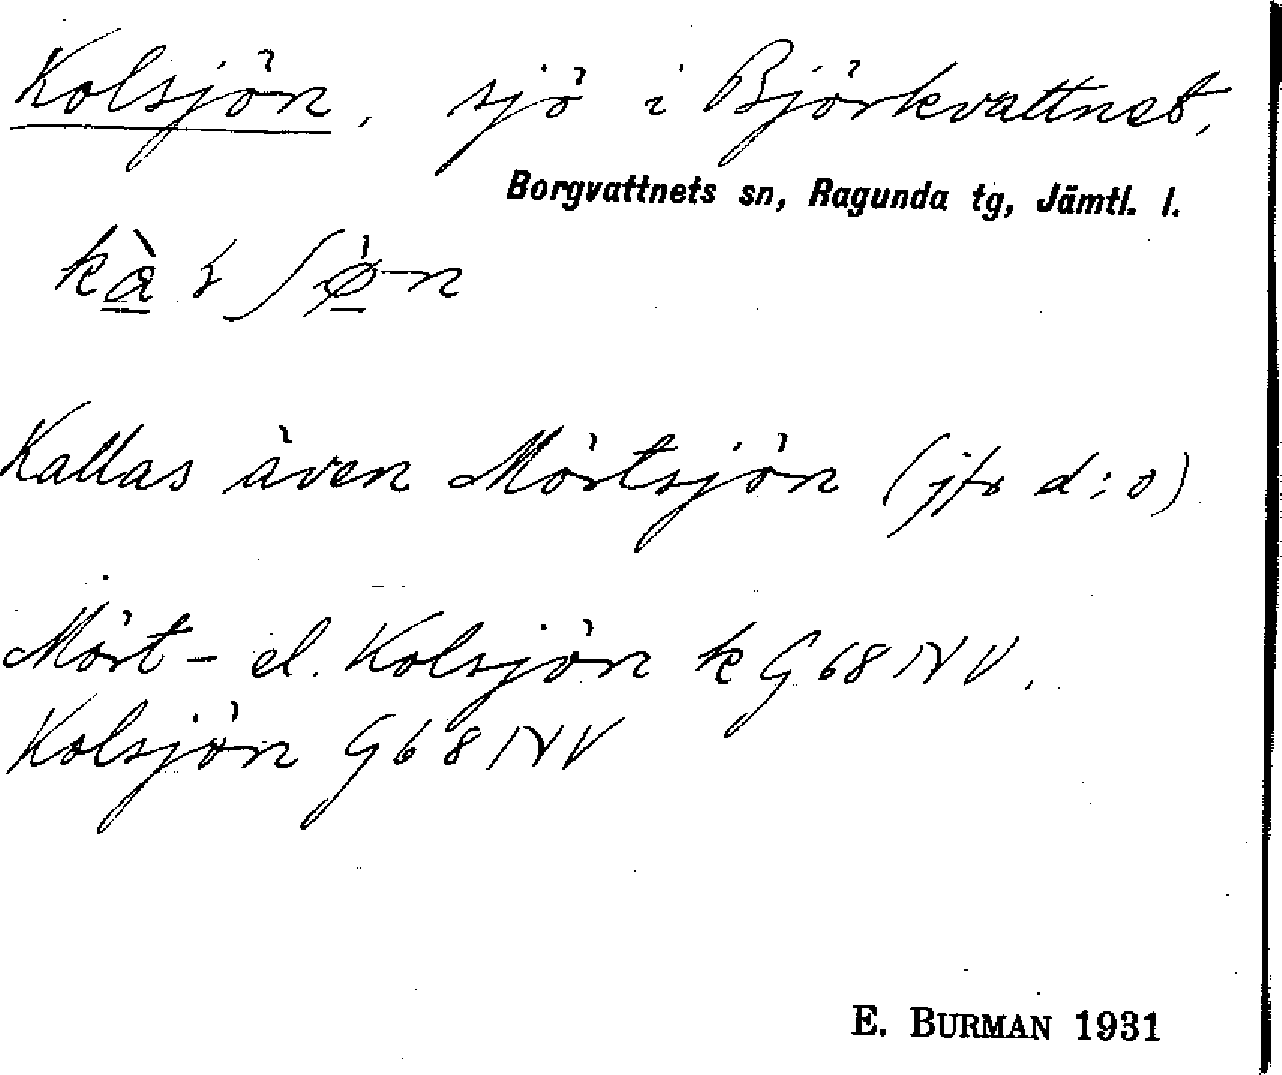 Kolsjön, sjö i Björkvattnet,
Borgvattnets sn, Ragunda tg, Jämtl. l.
Kallas även Mörtsjön (jfr d:o)
Mört- el. Kolsjön k G68NV.
Kolsjön G68NV
E. BURMAN 1931